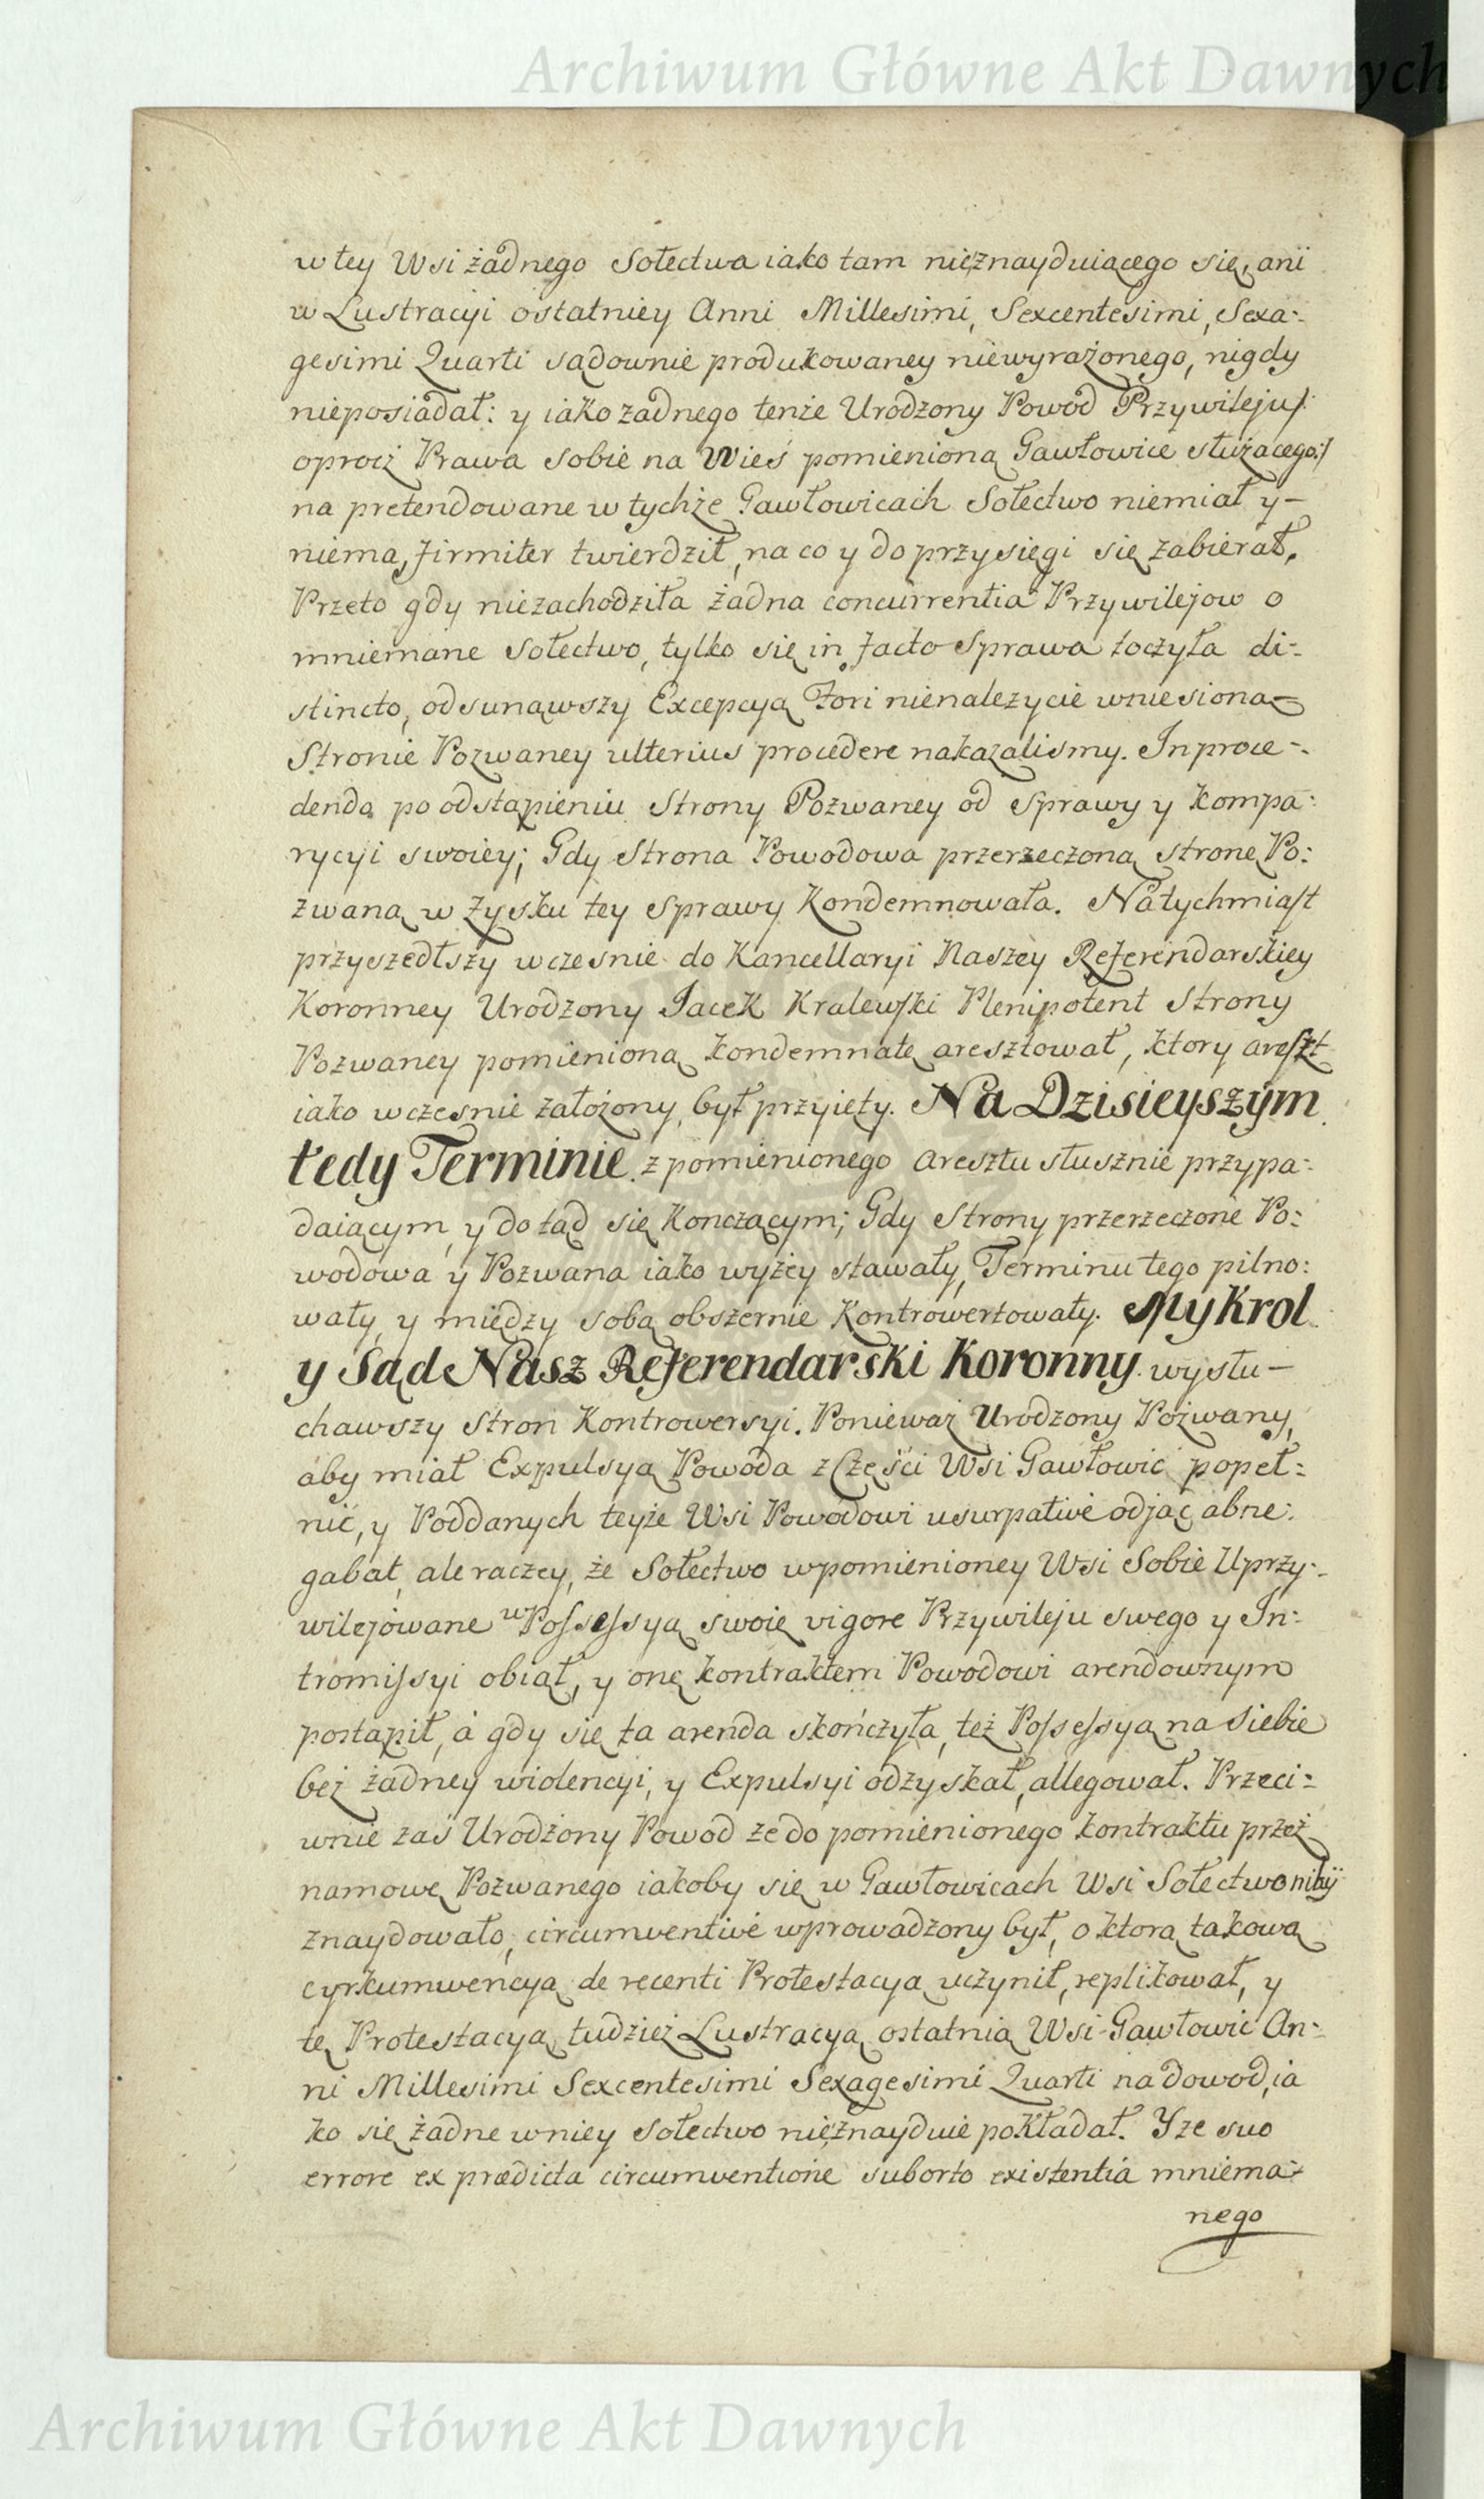 Archiwum Główne Akt Dawnych
w tey Wsi żadnego Sołectwa iako tam nieznayduiącego się, ani
w Lustracyi ostatniey Anni Millesimi, Sexcentesimi, Sexa-
gesimi Quarti sądownie produkowaney niewyrażonego, nigdy
nieposiadał: y iako żadnego tenże Urodzony Powod Przywileju/:
oprocz Prawa sobie na Wieś pomienioną Gawłowice służącego:/
na pretendowane w tychże Gawłowicach Sołectwo niemiał y—
niema, firmiter twierdził, na co y do przysięgi się zabierał,
Przeto gdy niezachodziła żadna concurrentia Przywilejow o
mniemane Sołectwo, tylko się in facto Sprawa toczyła di-
stincto, odsunąwszy Excepcyą Fori nienależycie wniesioną
Stronie Pozwaney ulterius procedere nakazalismy. In proce-
dendo po odstąpieniu Strony Pozwaney od Sprawy y kompa:
rycyi swoiey; Gdy Strona Powodowa przerzeczoną stronę Po:
zwaną w zysku tey Sprawy Kondemnowała. Natychmiast
przyszedłszy wczesnie do Kancellaryi Naszey Referendarskiey
Koronney Urodzony Jacek Kralewski Plenipotent Strony
Pozwaney pomienioną kondemnatę aresztował, ktory areszt
iako wczesnie założony, był przyięty. Na Dzisieyszym
tedy Terminie z pomienionego aresztu słusznie przypa-
daiącym, y do tąd się Kończącym; Gdy Strony przerzeczone Po:
wodowa y Pozwana iako wyżey stawały, Terminu tego pilno:
wały, y między sobą obszernie Kontrowertowały. My Krol
y Sąd Nasz Referendarski Koronny wysłu—
chawszy Stron Kontrowersyi. Ponieważ Urodzony Pozwany,
aby miał Expulsyą Powoda z Części Wsi Gawłowic popeł-
nić, y Poddanych teyże Wsi Powodowi usurpativè odjąć abne:
gabat, ale raczey, że Sołectwo w pomienioney Wsi Sobie Uprzy-
wilejowane w Possessyą swoię vigore Przywileju swego y In-
tromissyi obiął, y onę kontraktem Powodowi arendownym
postąpił, á gdy się ta arenda skończyła, też Possessyą na siebie
bez żadney violencyi, y Expulsyi odzyskał, allegował. Przeci-
wnie zaś Urodzony Powod że do pomienionego kontraktu przez
namowę Pozwanego iakoby się w Gawłowicach Wsi Sołectwo niby
znaydowało, circumventivè wprowadzony był, o ktorą takową
cyrkumwencyą de recenti Protestacyą uczynił, replikował, y
tę Protestacyą tudzież Lustracyą ostatnią Wsi Gawłowic An-
ni Millesimi Sexcentesimi Sexagesimi Quarti na dowod, ia
ko się żadne w niey Sołectwo nieznayduie pokładał. Y ze suo
errore ex prædicta circumventione suborto existentiá mniema-
nego
Archiwum Główne Akt Dawnych